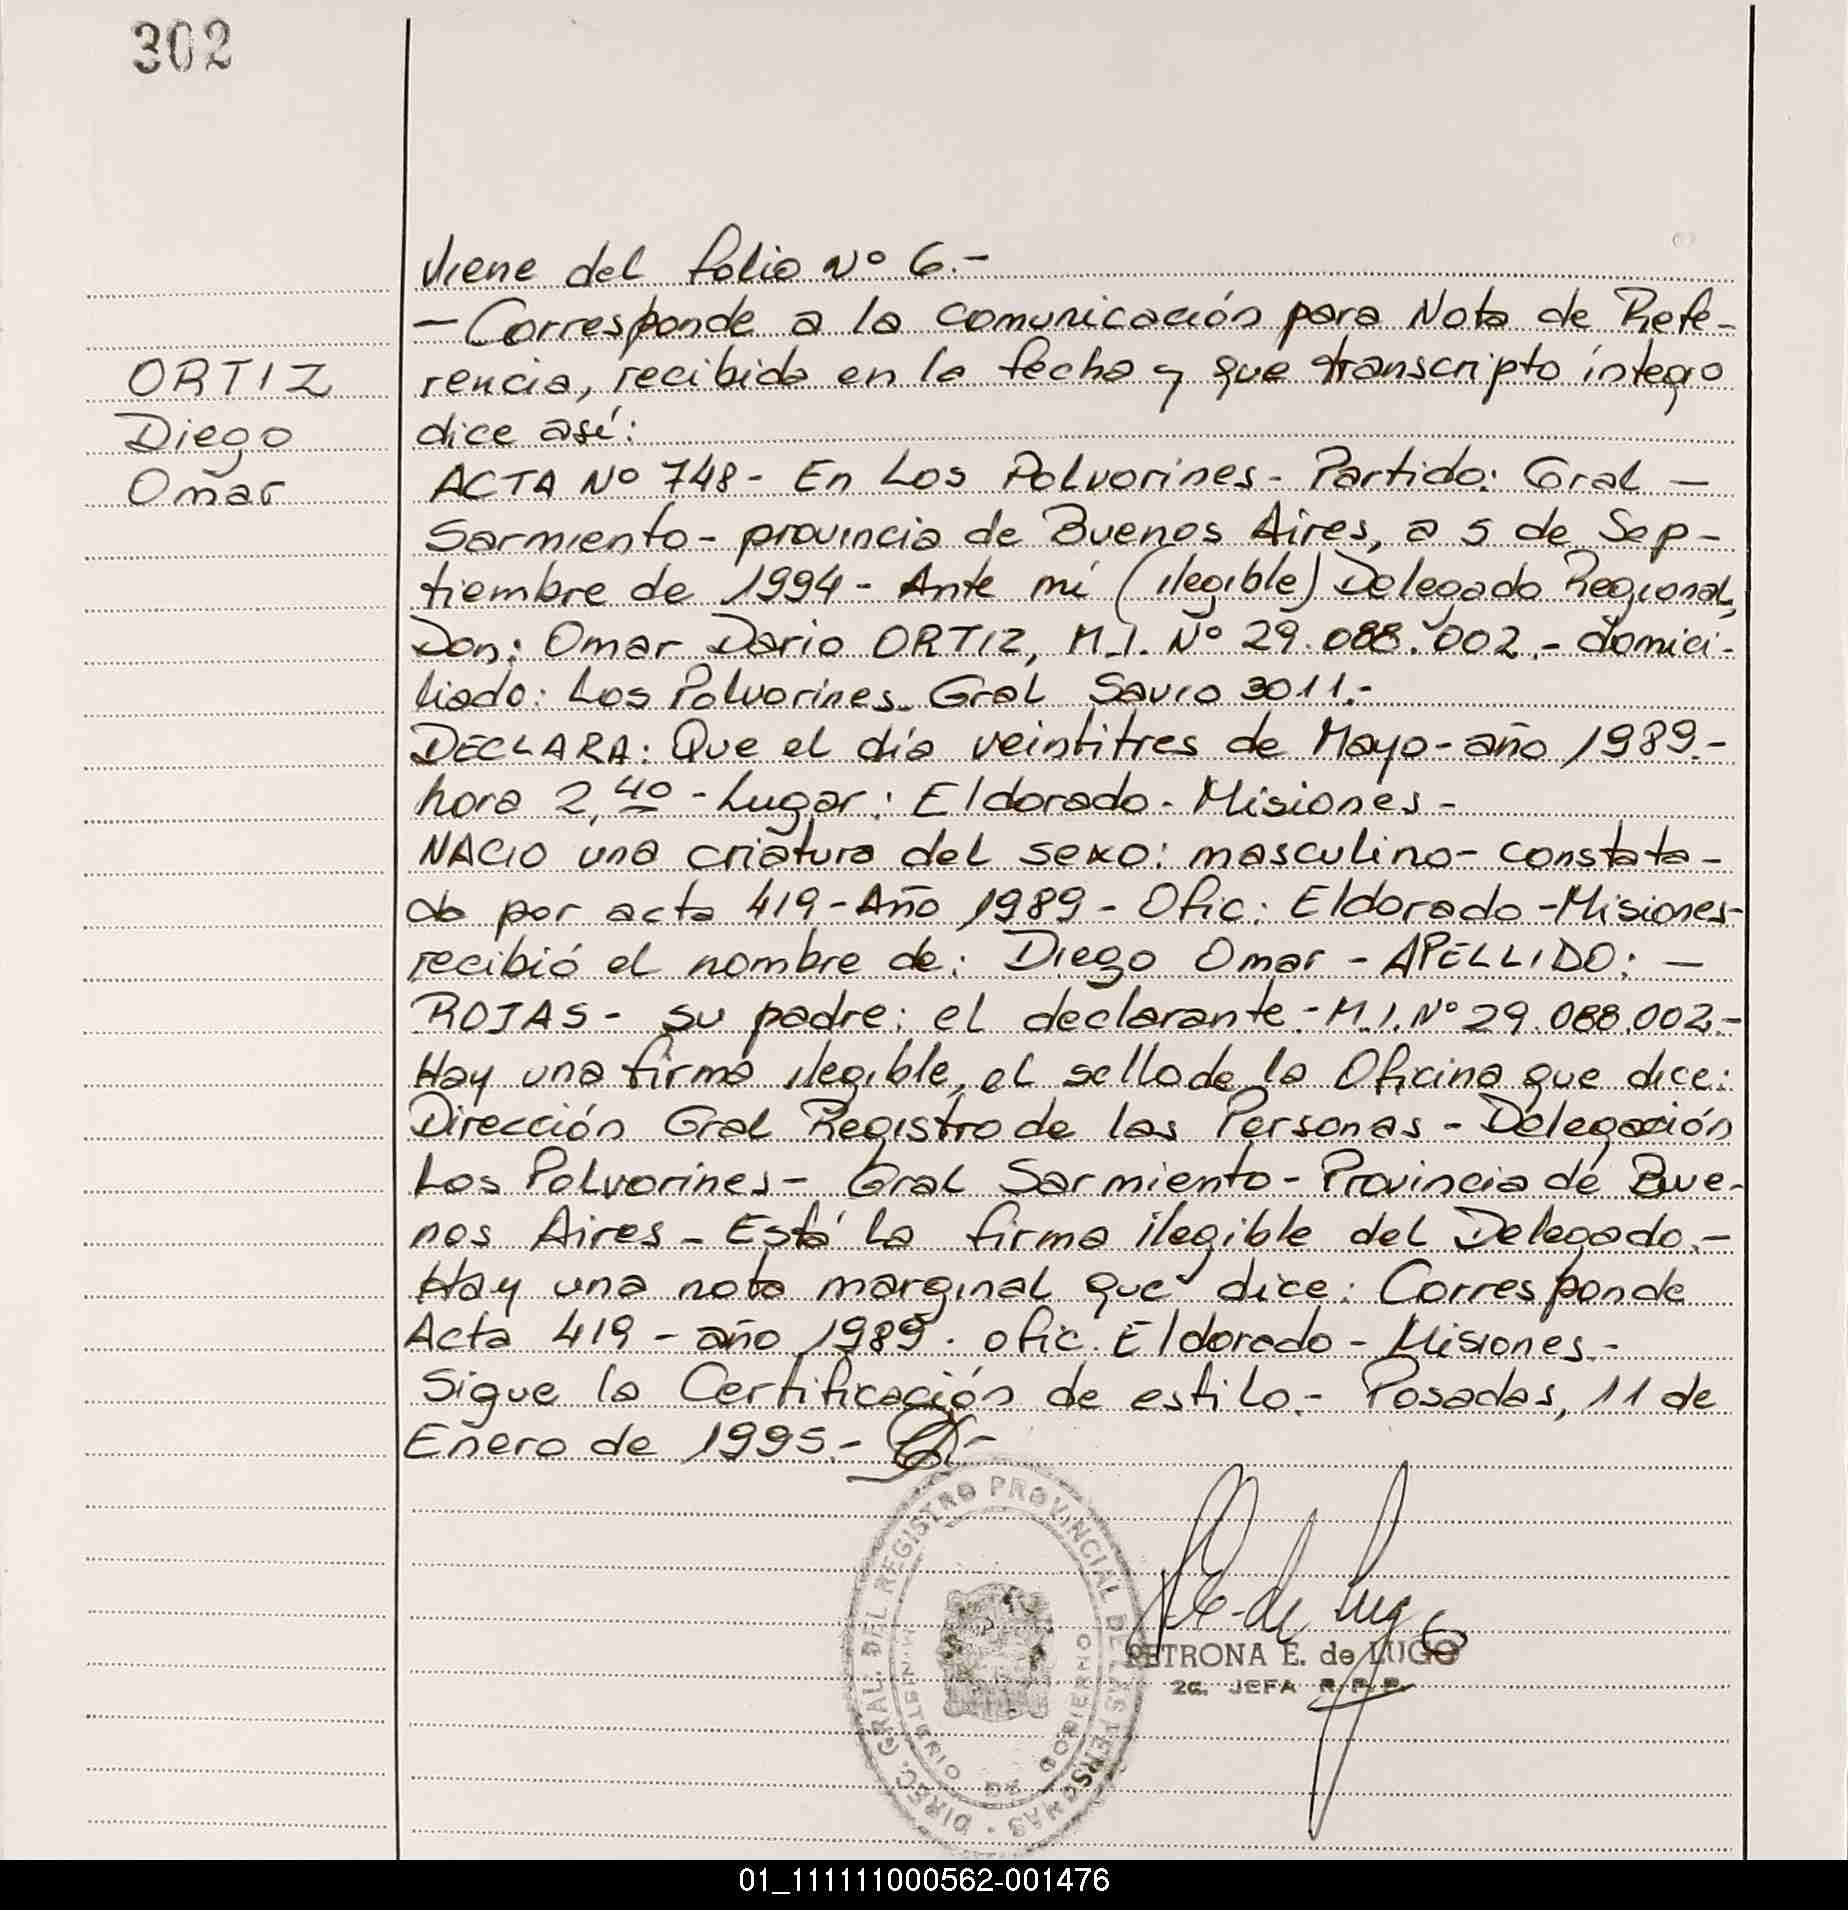 302
Viene del folio Nº 6.-
- Corresponde a la comunicación para Nota de Refe-
rencia, recibida en la fecha y que transcripto íntegro
dice así:
ORTIZ
Diego
Omar
ACTA Nº 748 - En Los Polvorines - Partido: Gral -
Sarmiento - provincia de Buenos Aires, a 5 de Sep-
tiembre de 1994 - Ante mí (ilegible) Delegado Regional,
Don: Omar Dario ORTIZ, M.I. Nº 29.088.002.- domici-
liado: Los Polvorines. Gral Savio 3011.-
DECLARA: Que el día veintitres de Mayo - año 1989.-
hora 2,40 - Lugar: Eldorado - Misiones -
NACIO una criatura del sexo: masculino - constata-
do por acta 419 - Año 1989 - Ofic: Eldorado - Misiones -
recibió el nombre de: Diego Omar - APELLIDO: -
ROJAS - su padre: el declarante - M.I. Nº 29.088.002.-
Hay una firma ilegible, el sello de la Oficina que dice:
Dirección Gral Registro de las Personas - Delegación
Los Polvorines - Gral Sarmiento - Provincia de Bue-
nos Aires - Está la firma ilegible del Delegado.-
Hay una nota marginal que dice: Corresponde
Acta 419 - año 1989. Ofic. Eldorado - Misiones.-
Sigue la Certificación de estilo.- Posadas, 11 de
Enero de 1995.-
DIREC. GRAL. DEL REGISTRO PROVINCIAL DE LAS PERSONAS
MINISTERIO DE GOBIERNO
E. de Lugo
PETRONA E. de LUGO
2a. JEFA R.P.P.
01_111111000562-001476